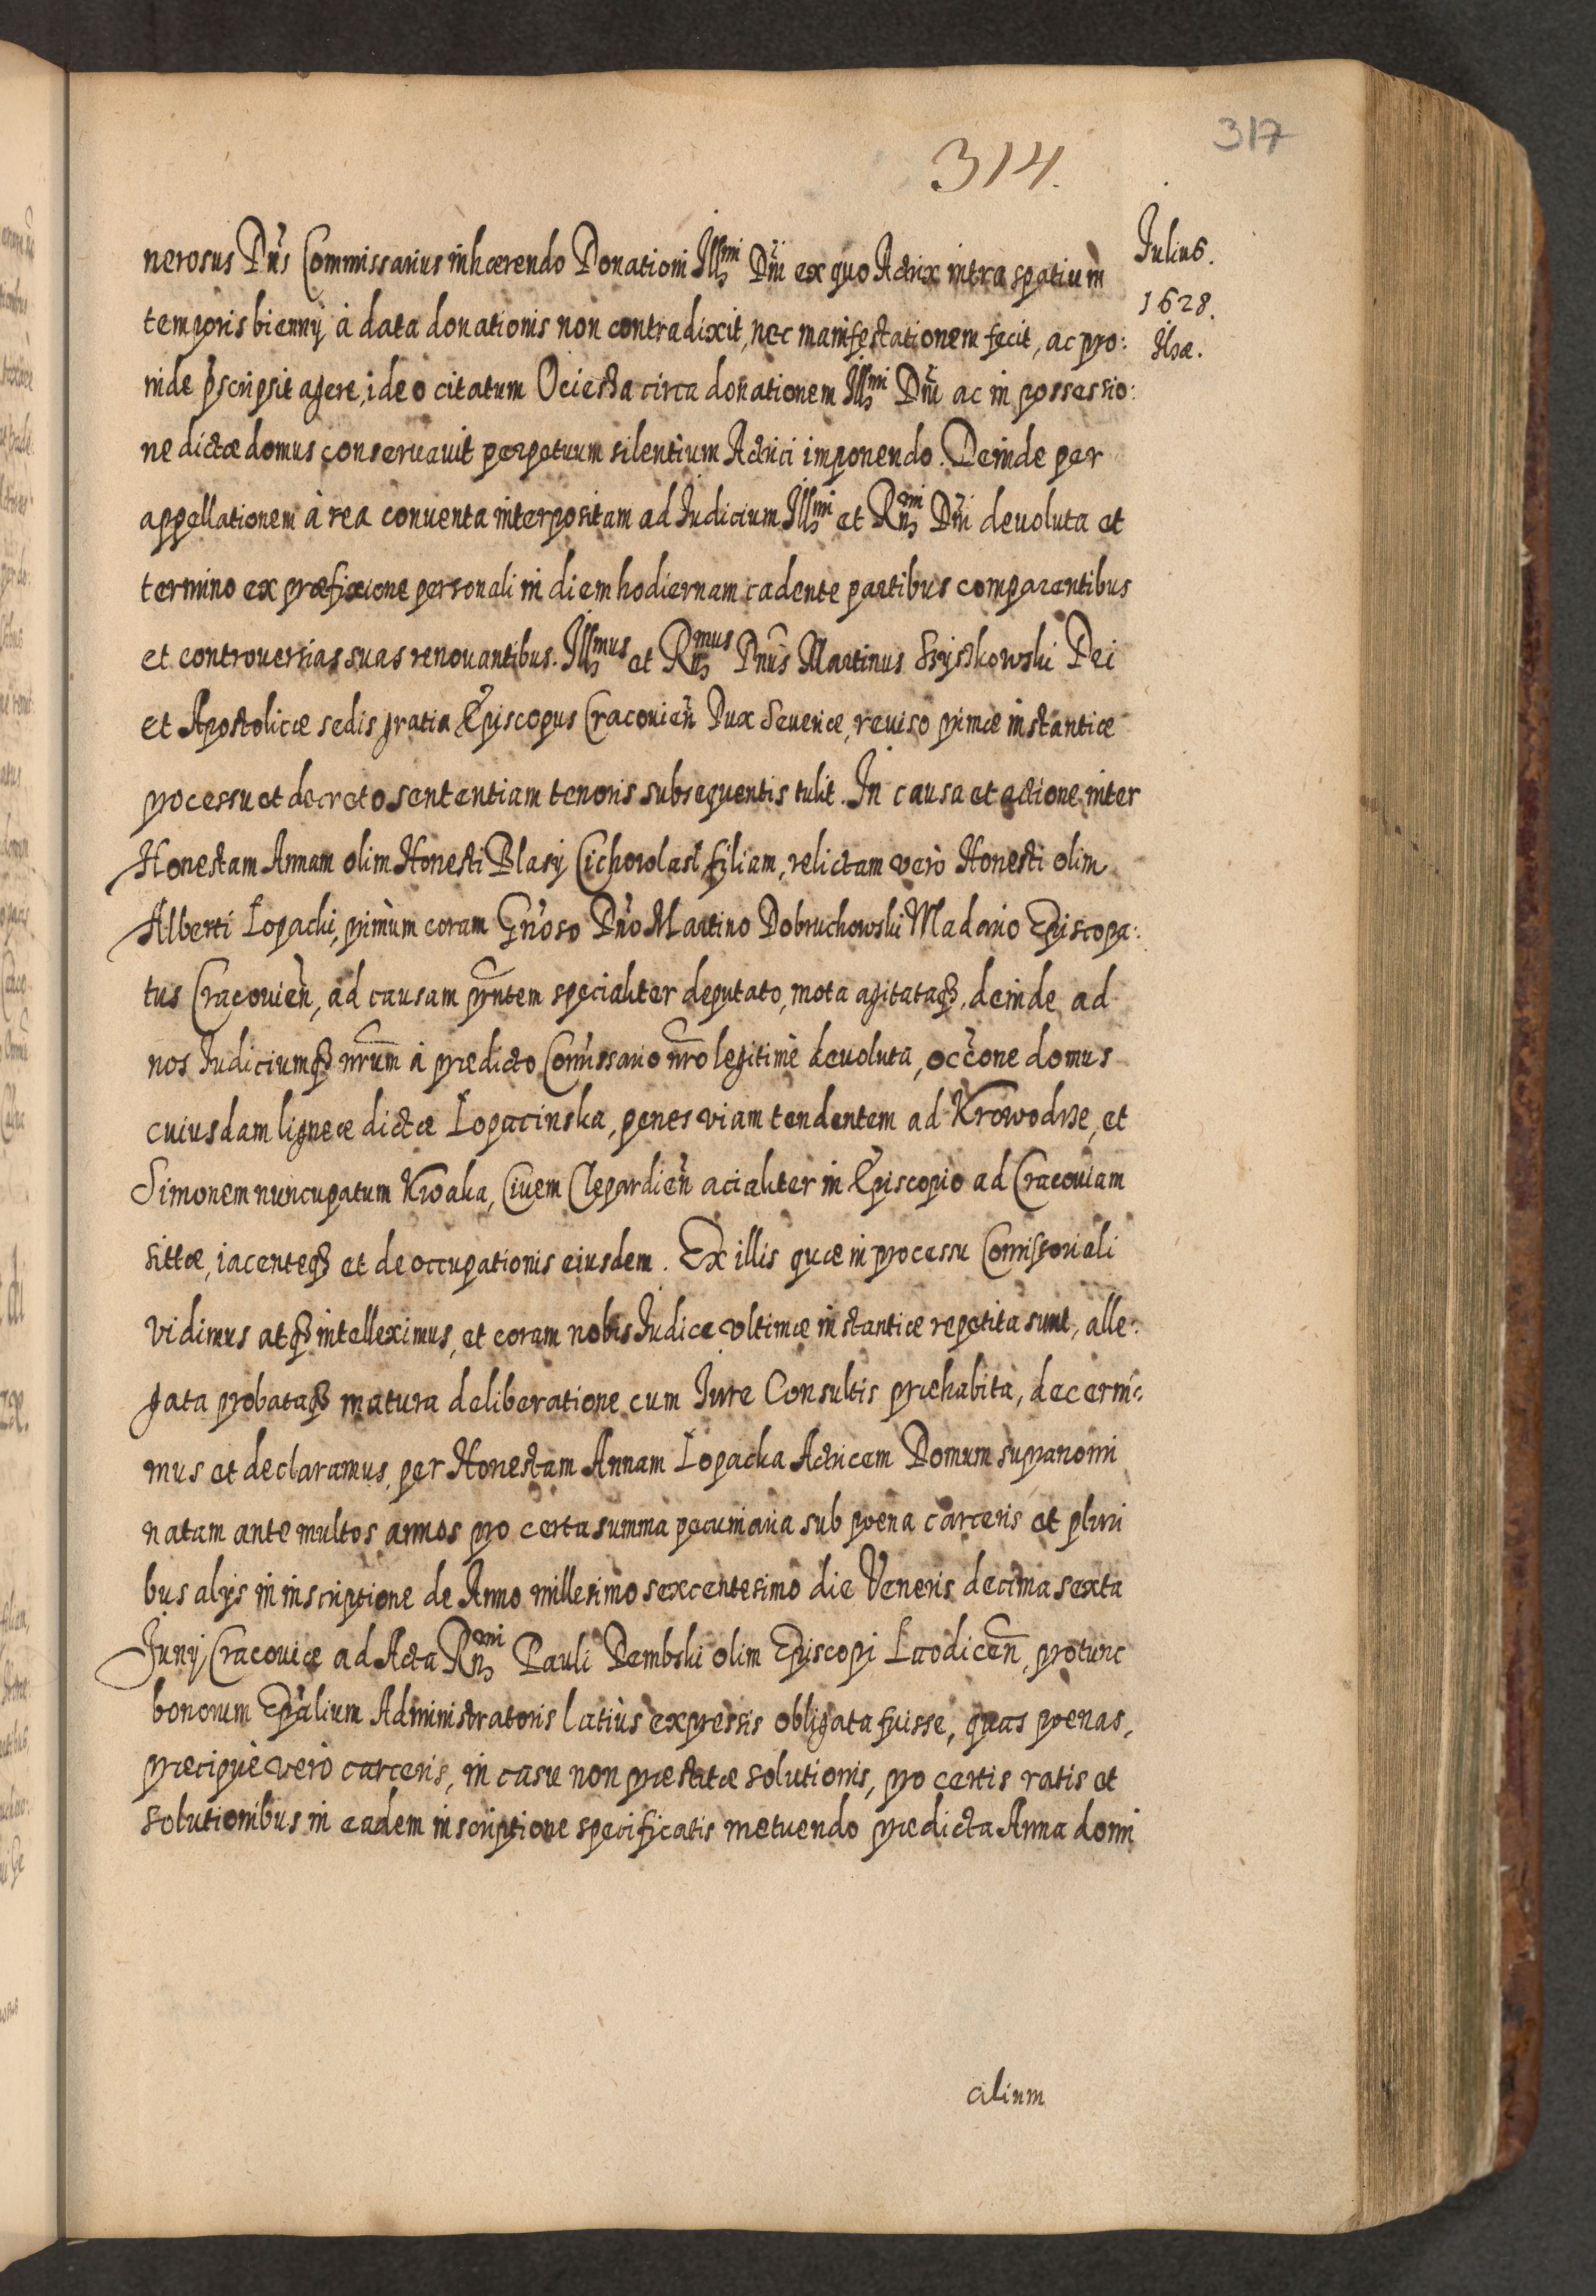 317
314.
Julius.
1628.
Ilżæ.
nerosus Dns Commissarius inhærendo Donationi Illmi Dni ex quo Actrix intra spatium
temporis bienny à data donationis non contradixit, nec manifestationem fecit, ac pro:
inde pscripsit agere, ideo citatum Ociesta circa donationem Illmi Dni ac in possessio:
ne dictæ domus conseruauit perpetuum silentium Actrici imponendo. Deinde per
appellationem à rea conuenta interpositam ad Iudicium Illmi et Rmi Dni deuoluta et
termino ex præfixione personali in diem hodiernam cadente partibus comparentibus
et controuersias suas renouantibus. Illmus et Rmus Dnus Martinus Szyszkowski Dei
et Apostolicæ sedis gratia Episcopus Cracouien Dux Seueriæ, reuiso primæ instantiæ
processu et decreto sententiam tenoris subsequentis tulit. In causa et actione inter
Honestam Annam olim Honesti Blasij Cichowlasi filiam, relictam verò Honesti olim
Alberti Łopacki, primùm coram Gnoso Dno Martino Dobruchowski Madario Episcopa:
tus Cracouien, ad causam pntem specialiter deputato, mota agitataq3, deinde ad
nos Iudiciumq3 nrum à prædicto Comissario nro legitimè deuoluta, occone domus
cuiusdam ligneæ dictæ Łopacinska, penes viam tendentem ad Krowodrze, et
Simonem nuncupatum Kwaka, Ciuem Clepardien acialiter in Episcopio ad Cracouiam
sittæ, iacenteq3 et de occupationis eiusdem. Ex illis quæ in processu Comissoriali
vidimus atq3 intelleximus, et coram nobis Iudice vltimæ instantiæ repetita sunt, alle:
gata probataq3 matura deliberatione cum Iure Consultis præhabita, decerni:
mus et declaramus, per Honestam Annam Łopacka Actricem Domum supranomi
natam ante multos annos pro certa summa pecuniaria sub poena carceris et pluri
bus alijs in inscriptione de Anno millesimo sexcentesimo die Veneris decima sexta
Junij Cracouiæ ad Acta Rmi Pauli Dembski olim Episcopi Laodicen, protunc
bonorum Epalium Administratoris latiùs expressis obligata fuisse, quas poenas,
præcipuè verò carceris, in casu non præstitæ solutionis, pro certis ratis et
solutionibus in eadem inscriptione specificatis metuendo prædicta Anna domi
alium